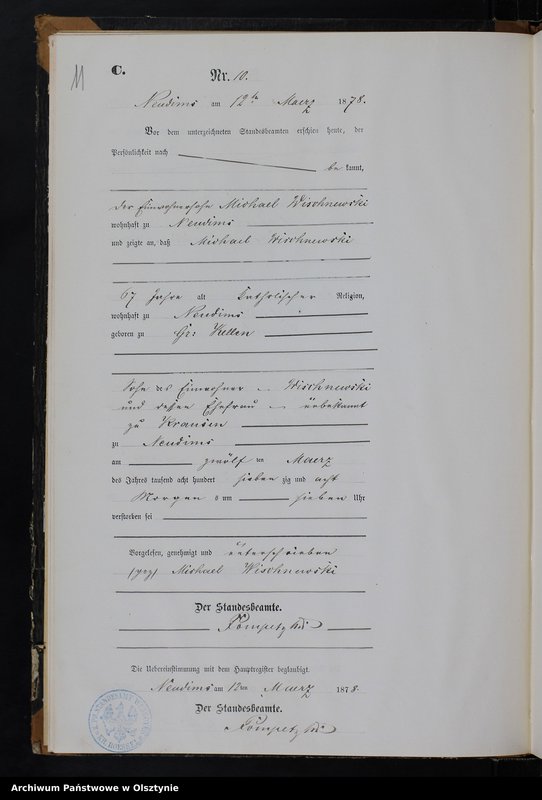 11
C.
Nr. 10.
Neudims am 12ten Maerz 1878.
Vor dem unterzeichneten Standesbeamten erschien heute, der
Persönlichkeit nach
be kannt,
der Einwohnersohn Michael Wischnewski
wohnhaft zu Neudims
und zeigte an, daß Michael Wischnewski
67 Jahre alt katholischer Religion,
wohnhaft zu Neudims
geboren zu Gr: Kellen
Sohn des Einwohner Wischnewski
und dessen Ehefrau unbekannt
zu Krausen
zu Neudims
am zwölf ten Maerz
des Jahres tausend acht hundert sieben zig und acht
Morgen s um sieben Uhr
verstorben sei
Vorgelesen, genehmigt und unterschrieben
(gez) Michael Wischnewski
Der Standesbeamte.
Die Uebereinstimmung mit dem Hauptregister beglaubigt.
Neudims am 12ten Maerz 1878.
Der Standesbeamte.
Archiwum Państwowe w Olsztynie